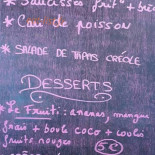 * Saucisses frit
* Cari de poisson
* SALADE DE TAPAS CRÉOLE
DESSERTS
* Le Fruiti : ananas, mangue
frais + boule coco + coulis
fruits rouges
5€